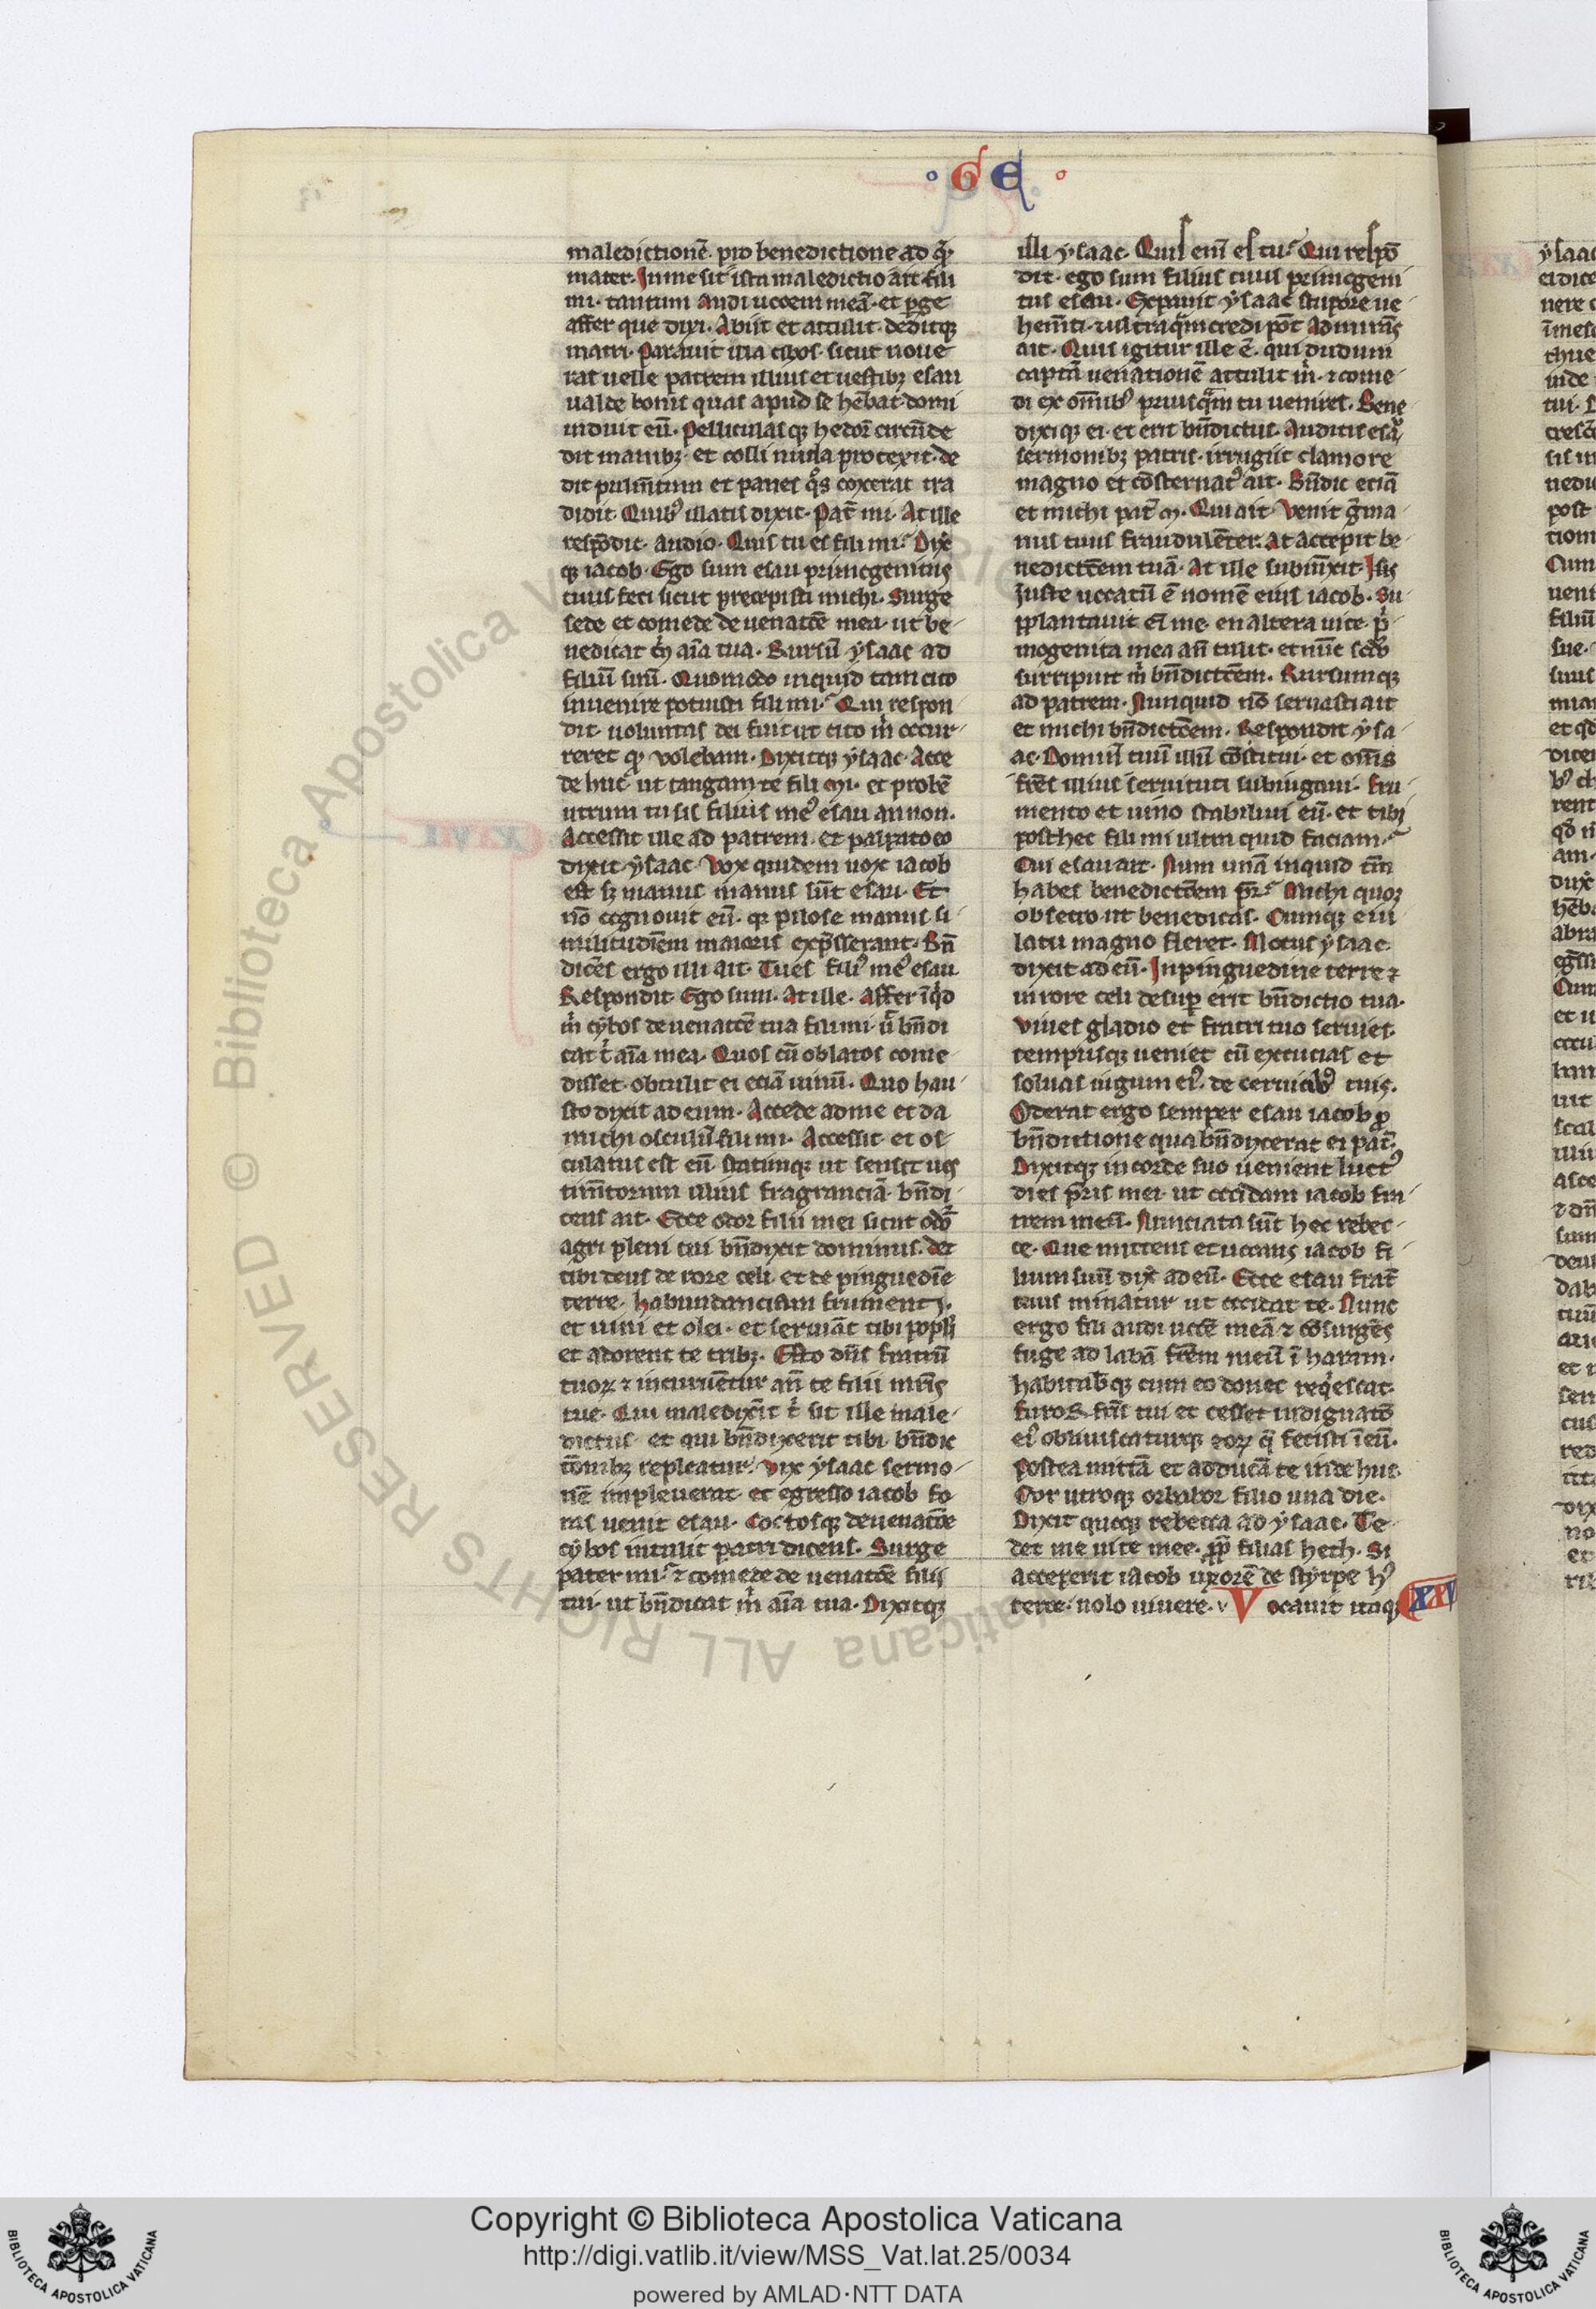 · G E ·
maledictionē. pro benedictione ad q̄m
mater. In me sit ista maledictio ait fili
mi. tantum audi uocem meā. et ꝑge
affer que dixi. Abiit et attulit deditqꝫ
matri. Parauit illa cibos. sicut noue
rat uelle patrem illius et uestibꝫ esau
ualde bonis quas apud se hēbat domi
induit eū. Pelliculasqꝫ hedoꝝ circūde
dit manibꝫ et colli nuda protexit. de
dit pulmtum et panes qͦs coxerat tra
didit. Quibꝰ illatis dixit. Pat̄ mi. At ille
respōdit. Audio. Quis tu es fili mi? Dix̄
qꝫ iacob. Ego sum esau primogenitus
tuus feci sicut precepisti michi. Surge
sede et comede de uenatōe mea. ut be
nedicat m̄ aīa tua. Rursū ysaac ad
filiū suū. Quomodo inquid tam cito
inuenire potuisti fili mi? Qui respon
dit. uoluntas dei fuit ut cito m̄ occur
reret qꝫ volebam. Dixitqꝫ ysaac. Acce
de huc ut tangam te fili mi. et probē
utrum tu sis filius meꝰ esau an non.
Accessit ille ad patrem. et palpato eo
dixit ysaac. Vox quidem uox iacob
est sꝫ manus manus sūt esau. Et
nō cognouit eū. qꝫ pilose manus si
militudiēm maioris exp̄sserant. Bn̄
dicēs ergo illi ait. Tu es filiꝰ meꝰ esau
Respondit. Ego sum. At ille. Affer īqͥd
m̄ cybos de uenatōe tua fili mi. ut bn̄di
cat t̄ aīa mea. Quos cū oblatos come
disset. obtulit ei eciā uinū. Quo hau
sto dixit ad eum. Accede ad me et da
michi osculū fili mi. Accessit et os
culatus est eū. Statimqꝫ ut sensit ues
timētorum illius fragranciā bn̄di
cens ait. Ecce odor filii mei sicut odoꝝ
agri pleni cui bn̄dixit dominus. det
tibi deus de rore celi. et de pinguedīe
terre. habundanciam frumenti.
et uini et olei. et seruiāt tibi popli
et adorent te tribꝫ. Esto dn̄s fratrū
tuoꝝ ⁊ incuruētur an̄ te filii mr̄is
tue. Qui maledixīt t̄ sit ille male
dictus et qui bn̄dixerit tibi bn̄dic
tōnibꝫ repleatur. Vix ysaac sermo
nē impleuerat et egresso iacob fo
ras uenit esau. Coctosqꝫ de uenatōe
cybos intulit patri dicens. Surge
pater mi ⁊ comede de uenatōe filii
tui. ut bn̄dicat m̄ aīa tua. Dixitqꝫ
illi ysaac. Quis enī es tu? Qui respō
dit. ego sum filius tuus primogeni
tus esau. Expauit ysaac stupore ue
hemēti. ⁊ ultra qͣm credi pōt admirās
ait. Quis igitur ille ē. qui dudum
captā uenationē attulit m̄. ⁊ come
di ex om̄ibꝰ priusqͣm tu uenires. Bene
dixiqꝫ ei. et erit bn̄dictus. Auditis esau
sermonibꝫ patris. irrugiit clamore
magno et cōsternatꝰ ait. Bn̄dic eciā
et michi pat̄ mi. Qui ait. Venit ḡma
nus tuus fraudulēter. at accepit be
nedictōem tuā. At ille subiūxit. Iste
Juste uocatū ē nomē eius iacob. Su
pplantauit eī me. en altera uice. pͥ
mogenita mea an̄ tulit. et nūc scd̄o
surripuit m̄ bn̄dictōem. Rursumqꝫ
ad patrem. Nunquid nō seruasti ait
et michi bn̄dictōem. Respondit ysa
ac. Dominū tuū illū cōstitui. et om̄s
fr̄es illius seruituti subiugaui. fru
mento et uino stabiliui eū. et tibi
post hec fili mi ultra quid faciam?
Cui esau ait. Num unā inquid tm̄
habes benedictōem pr̄? Michi quoqꝫ
obsecro ut benedicas. Cumqꝫ eiu
latu magno fleret. Motus ysaac
dixit ad eū. In pinguedine terre ⁊
in rore celi desuꝑ erit bn̄dictio tua.
Viues gladio et fratri tuo seruies
tempusqꝫ ueniet cū excucias et
soluas iugum eiꝰ. de ceruicibꝰ tuis.
Oderat ergo semper esau iacob ꝓ
bn̄dictione qua bn̄dixerat ei pat̄.
Dixitqꝫ in corde suo uenient luctꝰ
dies pr̄is mei. ut occidam iacob fra
trem meū. Nunciata sūt hec rebec
ce. Que mittens et uocans iacob fi
lium suū dix̄ ad eū. Ecce esau frat̄
tuus minatur ut occidat te. Nunc
ergo fili audi uocē meā ⁊ cōsurgēs
fuge ad labā fr̄em meū ī haram.
habitabisqꝫ cum eo donec reqͥescat
furor fr̄is tui et cesset indignatō
eiꝰ obliuiscaturqꝫ eoꝝ q̄ fecisti ī eū.
Postea mittā et adducā te inde huc
Cur utroqꝫ orbabor filio una die.
Dixit quoqꝫ rebecca ad ysaac. Te
det me uite mee. ꝓp̄ filias heth. Si
acceperit iacob uxorē de styrpe hꝰ
terre. nolo uiuere. v Vocauit itaqꝫ XXV
Copyright © Biblioteca Apostolica Vaticana
http://digi.vatlib.it/view/MSS_Vat.lat.25/0034
powered by AMLAD·NTT DATA